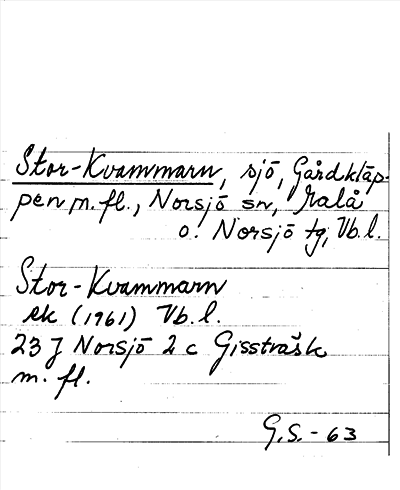 Stor-Kvammarn, sjö, Gårdkläp-
pen m.fl., Norsjö sn, Malå
o. Norsjö tg, Vb.l.
Stor-Kvammarn
ek (1961) Vb.l.
23 J Norsjö 2 c Gissträsk
m. fl.
G.S.-63